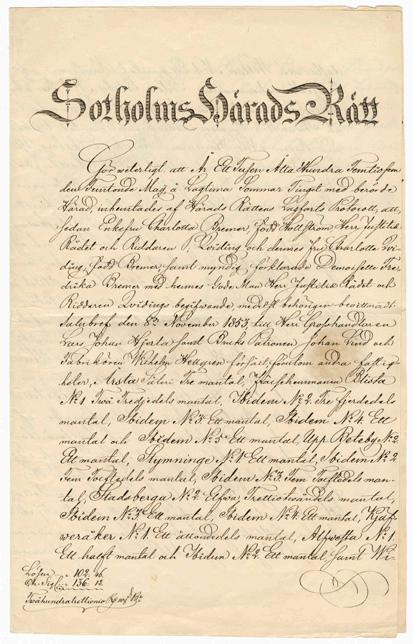 Sotholms Härads Rätt
Gör witerligt, att År Ett Tusen Åtta Hundra Femtiofem
den Femtonde Maj, å Lagtima Sommar Tinget med berörde
Härad, inhemtades af Härads Rättens Lagfarts Protocoll, att,
sedan Enkefru Charlotta Bremer, född Hollström, Herr Justitiæ
Rådet och Riddaren P. Qviding och dennes fru Charlotte Qvi-
ding, född Bremer, samt myndig förklarade Demoiselle Fre-
drika Bremer med hennes Gode Man Herr Justitiæ Rådet och
Riddaren Qvidings begifwande, medelst behörigen bewittnadt
Salubref den 8de November 1853, till Herr Grosshandlaren
Lars Johan Hjerta samt Bruks Patronen Johan
Fabrikören Wilhelm Hellgren försålt, förutom andra fastig-
heter, Årsta Säteri Tre mantal, Blista
No 1 Twå Tredjedels mantal, Ibidem No 2. Tre fjerdedels
mantal, Ibidem No 3 Ett mantal, Ibidem No 4. Ett
mantal och Ibidem No 5 Ett mantal, Upp Roteby No 2.
Ett mantal, Stymninge No 1 Ett mantal, Ibidem No 2
Fem Tolftedels mantal, Ibidem No 3. Fem Tolftedels man-
tal, Stadsberga No 2 Elfwa Trettiotvåondels mantal,
Ibidem No 3. Ett mantal, Ibidem No 4. Ett mantal, Kalf-
weråker No 1 Ett åttondedels mantal, Alfwesta No 1.
Ett halft mantal och Ibidem No 2. Ett mantal samt Wi-
Lösen 102. 46.
Ch. Sig. 136. 12.
Twåhundratrettionio